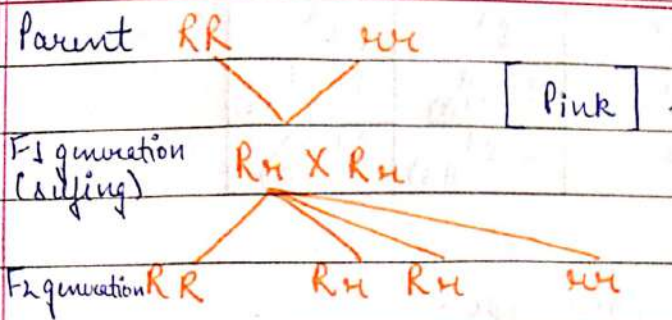 Parent RR rr
Pink
F1 generation Rr X Rr
(selfing)
F2 generation RR Rr Rr rr